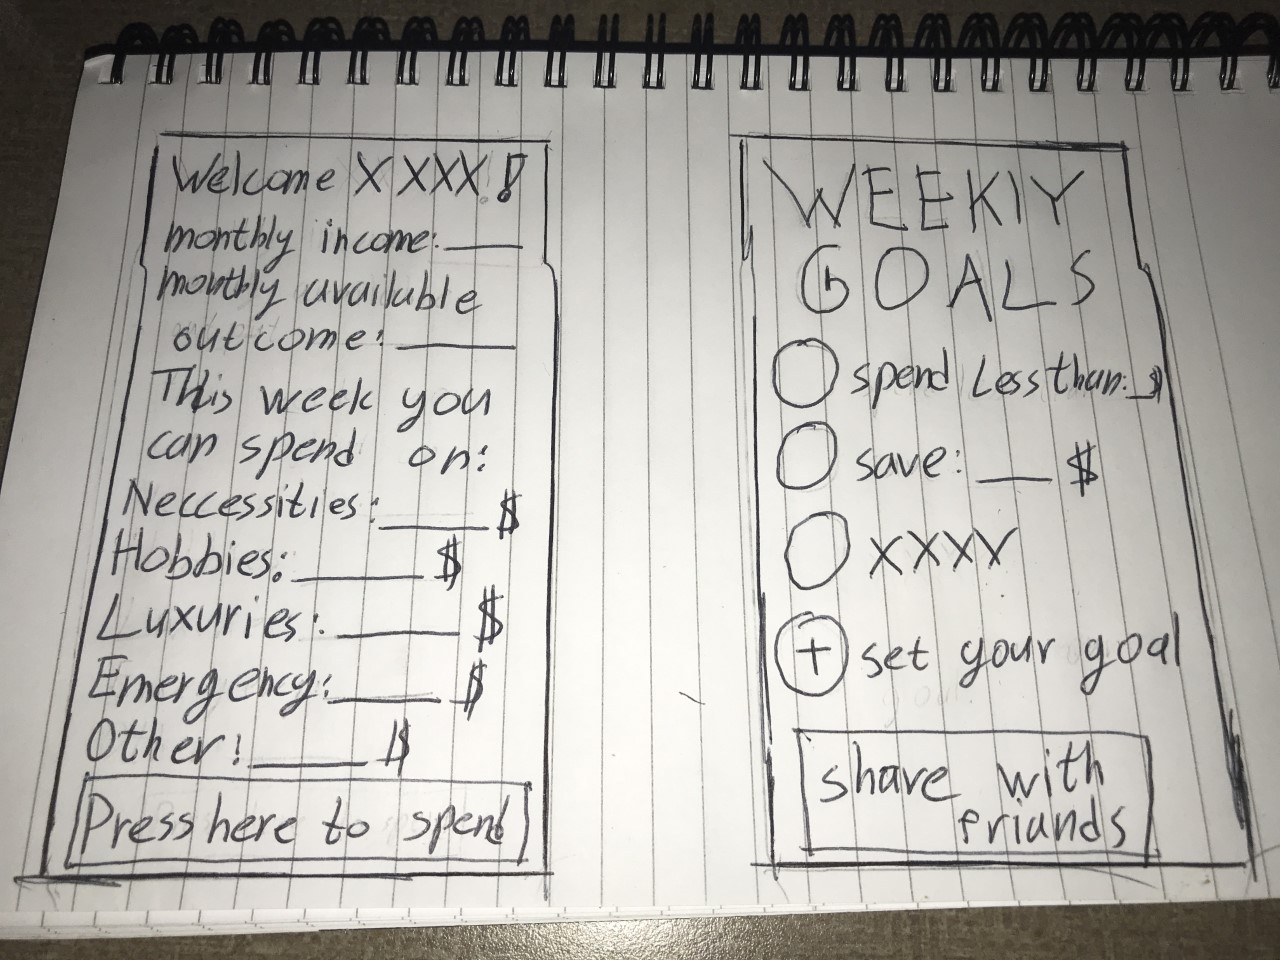 Welcome XXXX!
monthly income: ____
monthly available
outcome: ____
This week you
can spend on:
Neccessities: ____ $
Hobbies: ____ $
Luxuries: ____ $
Emergency: ____ $
Other: ____ $
Press here to spend
WEEKLY
GOALS
spend Less than: _$
save: __ $
XXXX
+ set your goal
share with
friands